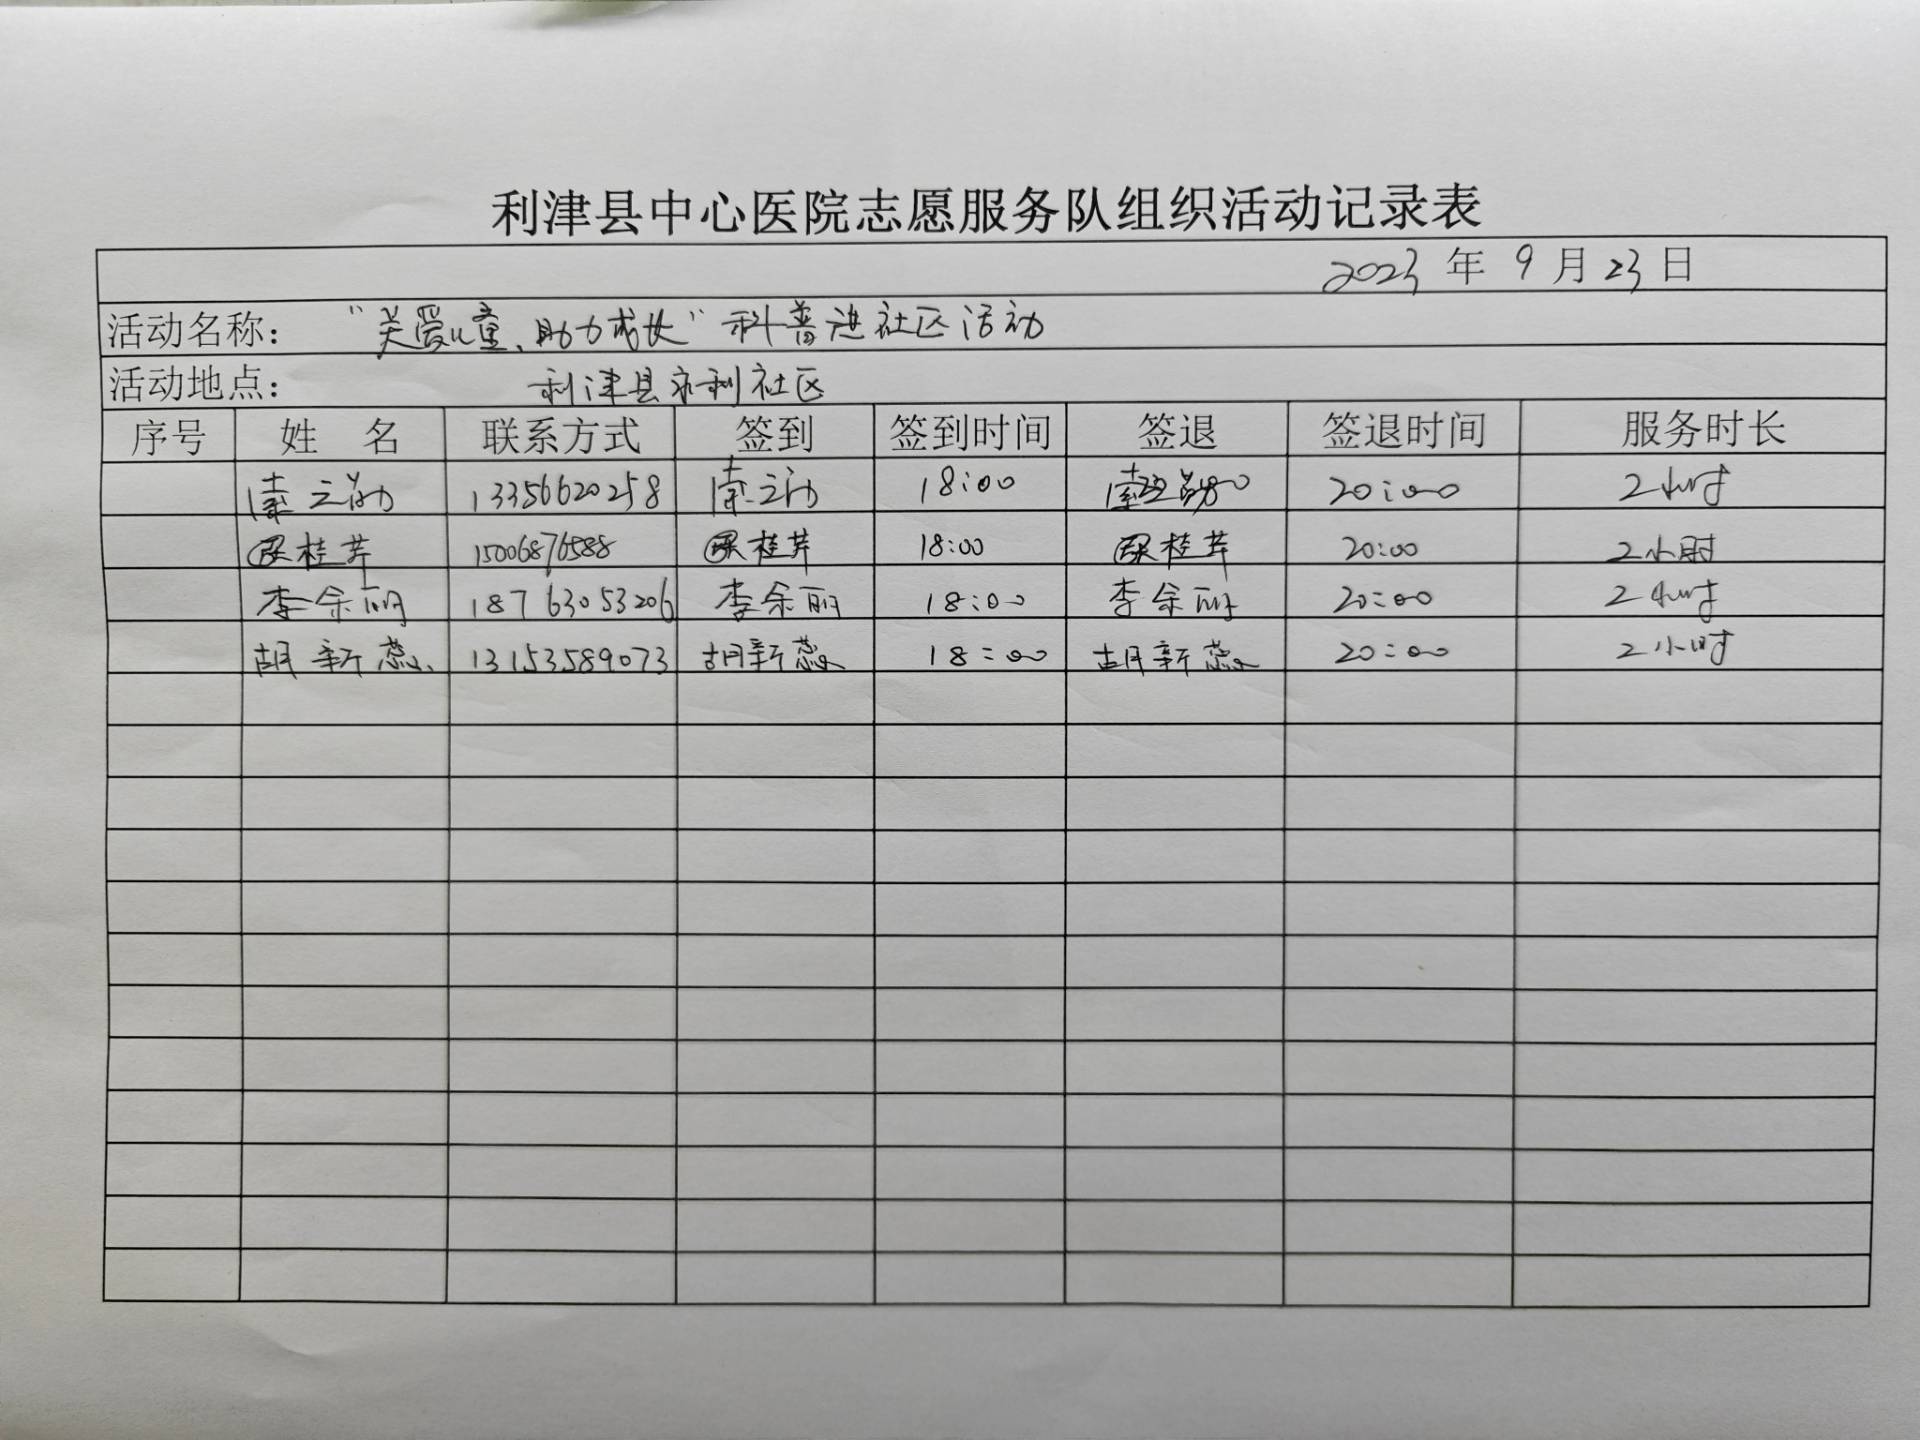 利津县中心医院志愿服务队组织活动记录表
2023 年 9 月 23 日
活动名称： “关爱儿童、助力成长”科普进社区活动
活动地点： 利津县永利社区
序号 姓 名 联系方式 签到 签到时间 签退 签退时间 服务时长
13356620258 18:00 20:00 2小时
桂芹 15006876588 桂芹 18:00 桂芹 20:00 2小时
李余丽 18763053206 李余丽 18:00 李余丽 20:00 2小时
胡新蕊 13153589073 胡新蕊 18:00 胡新蕊 20:00 2小时